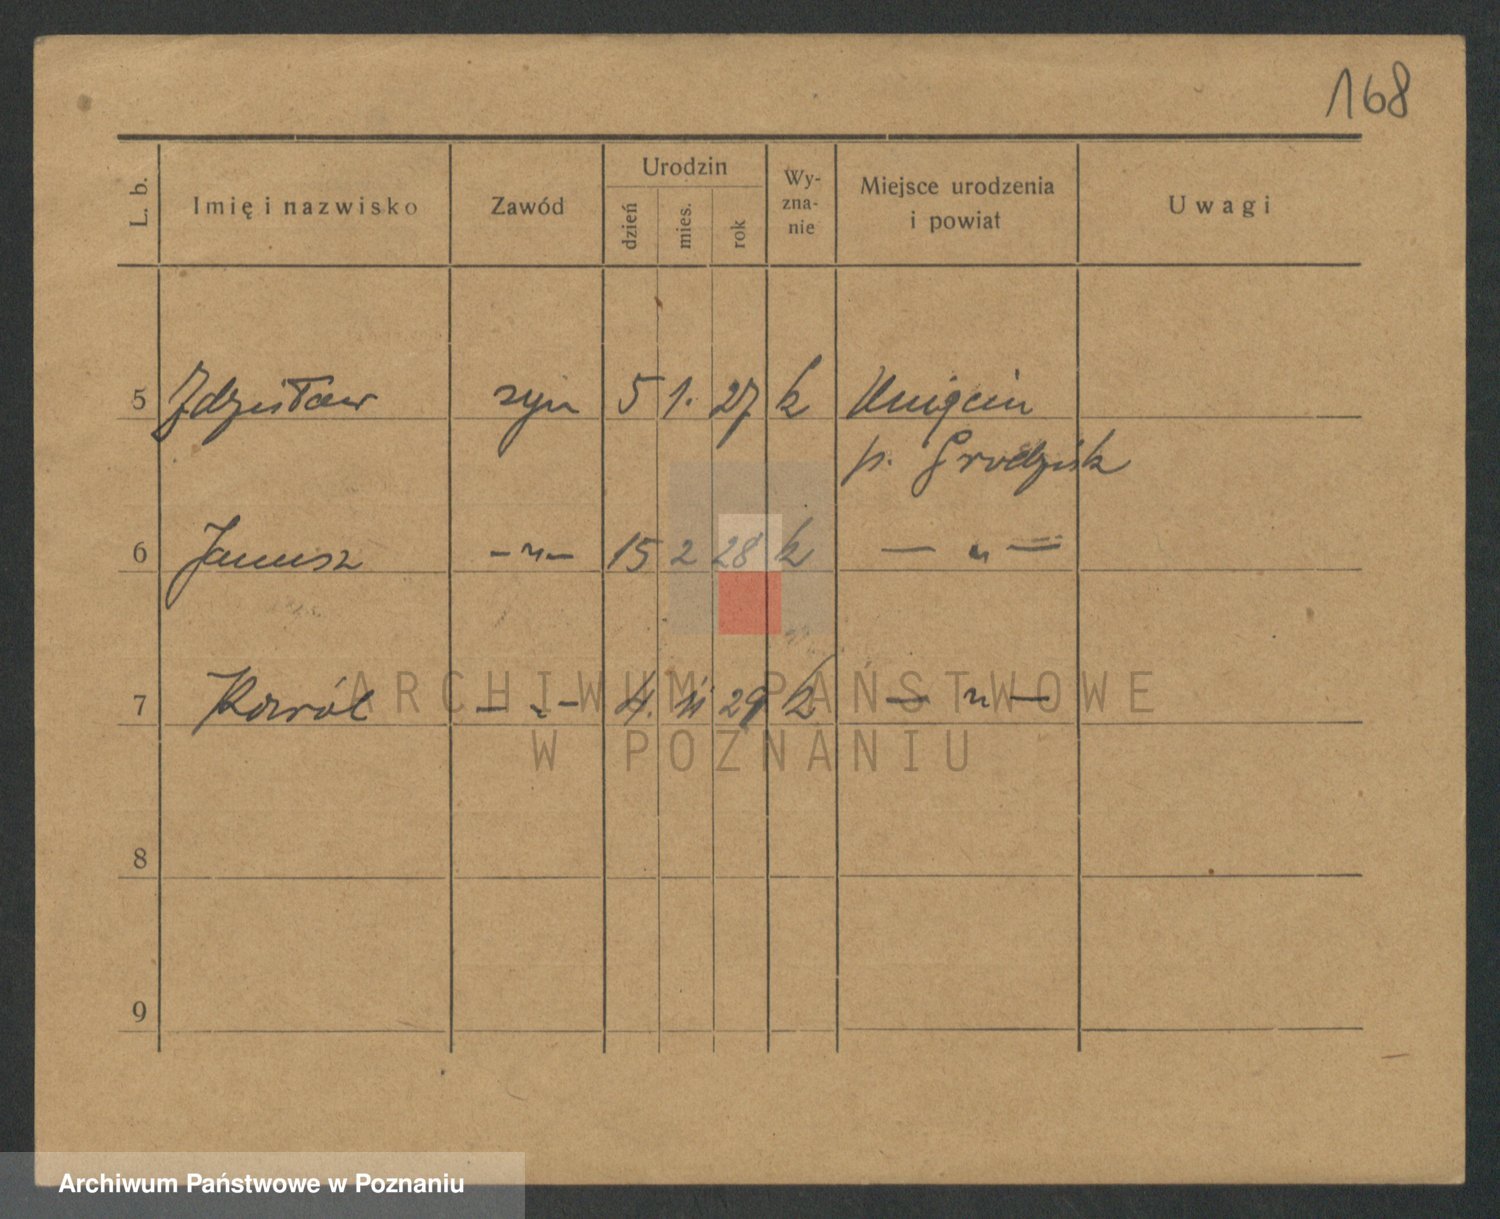 168
L. b.
Imię i nazwisko
Zawód
Urodzin
dzień
mies.
rok
Wy-
zna-
nie
Miejsce urodzenia
i powiat
Uwagi
5 Zdzisław syn 5 1. 27 k
p. Grodzisk
6 Janusz — „ — 15 2 28 k — „ —
7 Karól — „ — 4. 11 29 k — „ —
8
9
ARCHIWUM PAŃSTWOWE
W POZNANIU
Archiwum Państwowe w Poznaniu